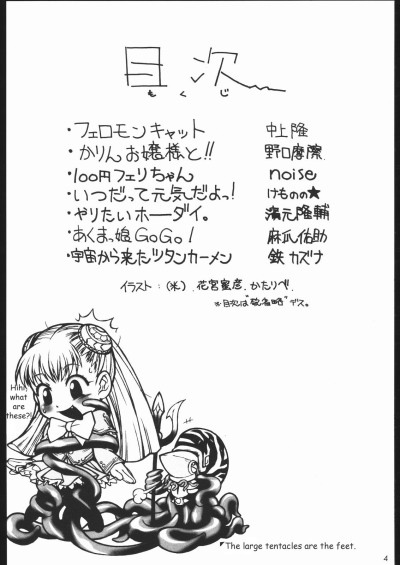 目次
もくじ
・フェロモンキャット 中上隆
・かりんお嬢様と!! 野口摩際
・100円フェリちゃん noise
・いつだって元気だよっ! けものの★
・やりたいホーダイ。 濱元隆輔
・あくまっ娘GoGo! 麻爪佑助
・宇宙から来たツタンカーメン 鉄カズナ
イラスト:(米)、花宮蜜彦、かたりべ、
※目次は"敬省略"デス。
Hih!
what
are
these?!
The large tentacles are the feet.
4